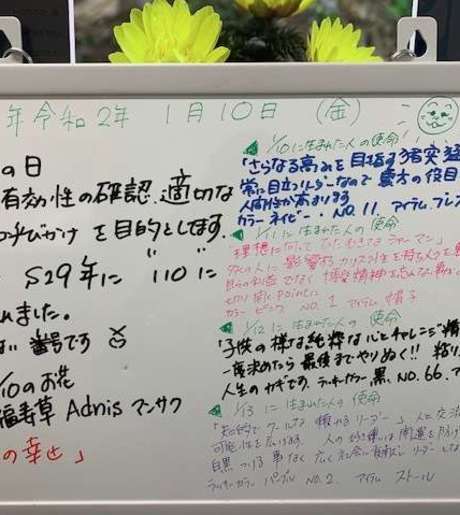 年令和2年 1月10日 (金)
の日
有効性の確認、適切な
呼びかけを目的としてます.
S29年に "110"に
れました。
ない番号です
/10のお花
福寿草 Adnis マンサク
の幸せ」
1/10に生まれた人の使命
「さらなる高みを目指す猪突猛
常に目立つリーダーなので 裏方の役目
人間性が高まります
カラー ネイビー・NO.11. アイテム. ブレス
1/11に生まれた人の使命
「理想に向って ひたむきな シャーマン」
多くの人に影響する カリスマ性を持
切り開くPoint
カラー ピンク NO.1 アイテム 帽子
1/12に生まれた人の使命
「子供の様な純粋な心とチャレンジ精
一度決めたら 最後までやりぬく!! 粘り
人生のカギです. ラッキーカラー黒、NO.66. ア
1/13に生まれた人の使命
「知的で クールな 頼れる リーダー」人と交流
可能性を広げます.
広く社会に
ラッキーカラー パープル NO.2. アイテム ストール